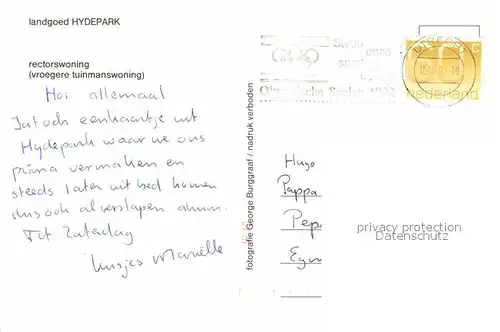 landgoed HYDEPARK
rectorswoning
(vroegere tuinmanswoning)
Hoi allemaal
Ja toch een kaartje uit
Hydepark waar we ons
prima vermaken en
steeds later uit bed komen
dus ook al verslapen
Tot Zaterdag
kusjes Mariëlle
fotografie George Burggraaf / nadruk verboden
Steun onze
Olympische Spelen
nederland
Hugo
Pappa
Pep
privacy protection
Datenschutz